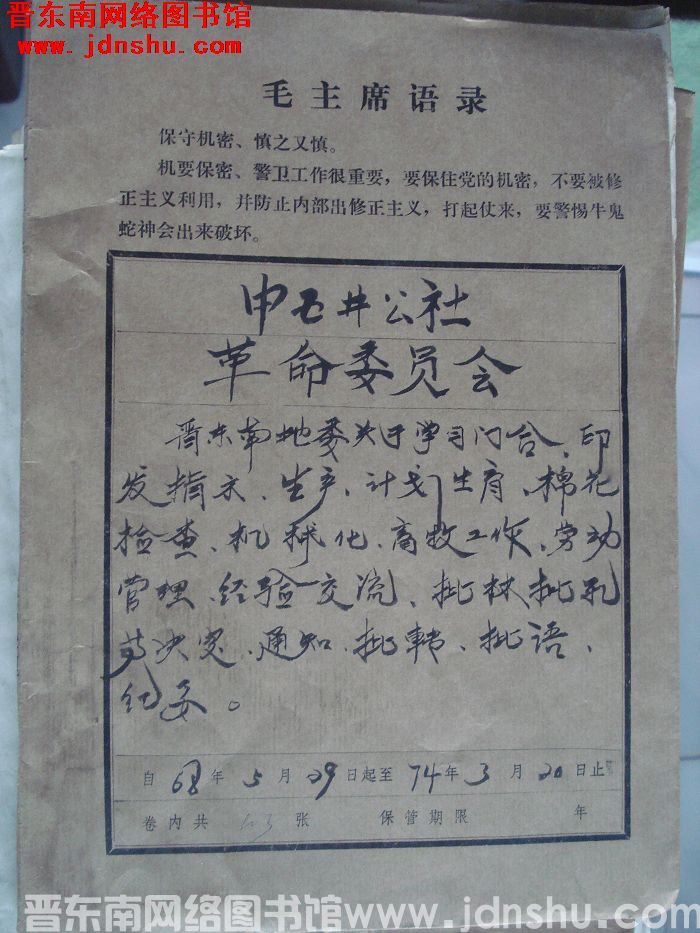 晋东南网络图书馆
www.jdnshu.com
毛主席语录
保守机密、慎之又慎。
机要保密、警卫工作很重要，要保住党的机密，不要被修
正主义利用，并防止内部出修正主义，打起仗来，要警惕牛鬼
蛇神会出来破坏。
申石井公社
革命委员会
晋东南地委关于学习门合、印
发指示、生产、计划生育、棉花
检查、机械化、畜牧工作、劳动
管理、经验交流、批林批孔
等决定、通知、批转、批语、
纪要。
自68年5月29日起至74年3月20日止
卷内共 张 保管期限 年
晋东南网络图书馆www.jdnshu.com